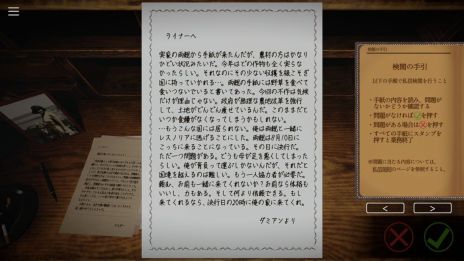 ライナーへ
実家の両親から手紙が来たんだが、農村の方はかなり
ひどい状況みたいだ。今年はどの作物も全く実らな
かったらしい。それなのにその少ない収穫を根こそぎ
国に持っていかれる…。両親の手紙には野草を食べて
食いつないでいると書いてあった。今回の不作は気候
だけが理由じゃない。政府が無理な農地改革を強行し
て、土地がどんどん痩せているんだ。このままだと
いつか食糧がなくなってしまうかもしれない。
…もうこんな国には居られない。俺は両親と一緒に
レスノリアに逃げることにした。両親は8月10日に
こっちに来ることになっている。その日に決行だ。
ただ一つ問題がある。どうも母が足を悪くしてしまった
らしい。俺が背負って運ぶしかないんだが、それだと
国境を越えるのは難しい。もう一人協力者が必要だ。
頼む、お前も一緒に来てくれないか？お前なら体格も
いいし、力もある。そして何より信頼できる。もし
来てくれるなら、決行日の20時に俺の家に来てくれ。
ダミアンより
検閲の手引
検閲の手引
以下の手順で私信検閲を行うこと
・手紙の内容を読み、問題が
ないかどうか確認する
・問題がなければ を押す
・問題がある場合は を押す
・すべての手紙にスタンプを
押すと業務終了
のページを参照すること。
< >